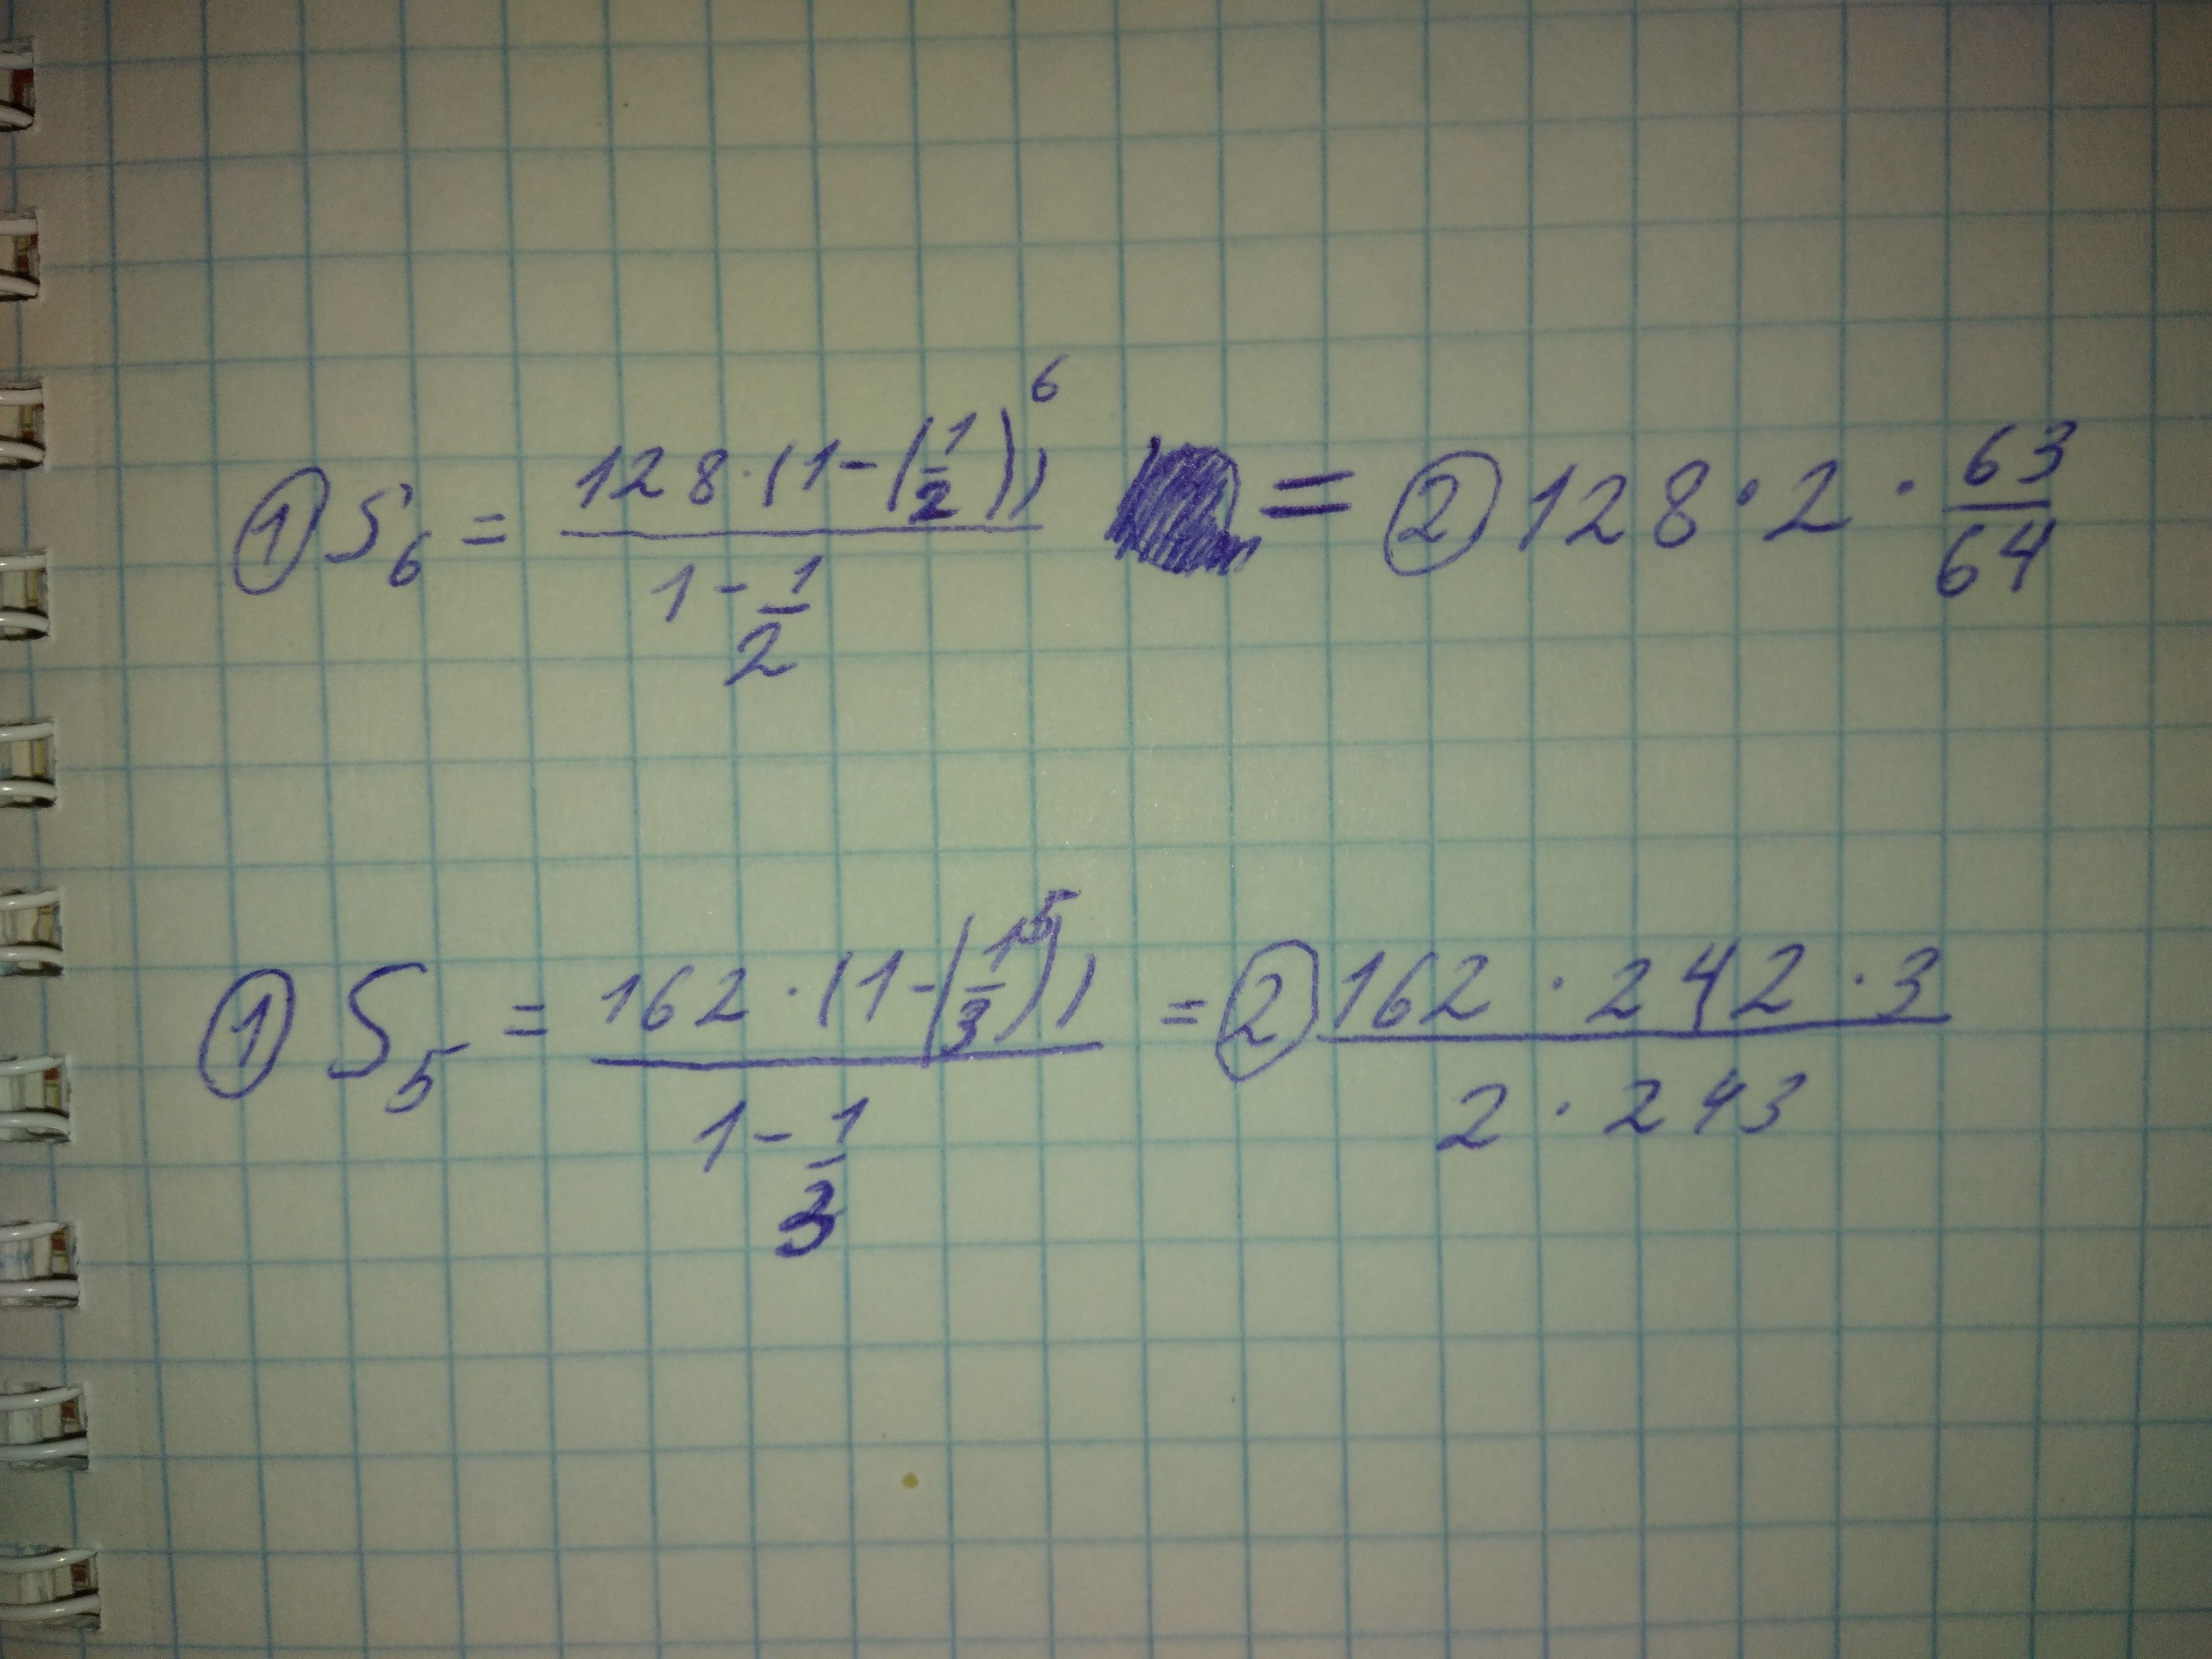 ① S₆ = \frac{128·(1-(\frac{1}{2})^6)}{1-\frac{1}{2}} = ② 128·2·\frac{63}{64}
① S₅ = \frac{162·(1-(\frac{1}{3})^5)}{1-\frac{1}{3}} = ② \frac{162·242·3}{2·243}